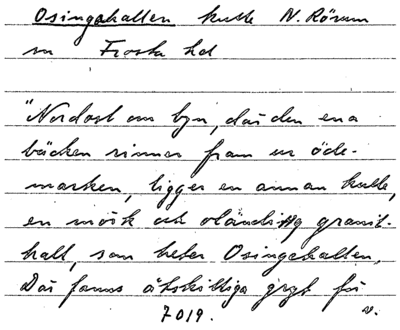 Osingahallen kulle N. Rörum
sn Frosta hd
"Nordost om byn, där den ena
bäcken rinner fram ur öde-
marken, ligger en annan kulle,
en mörk och oländig granit-
hall, som heter Osingahallen.
Där fanns åtskilliga grytt för
7019. v.